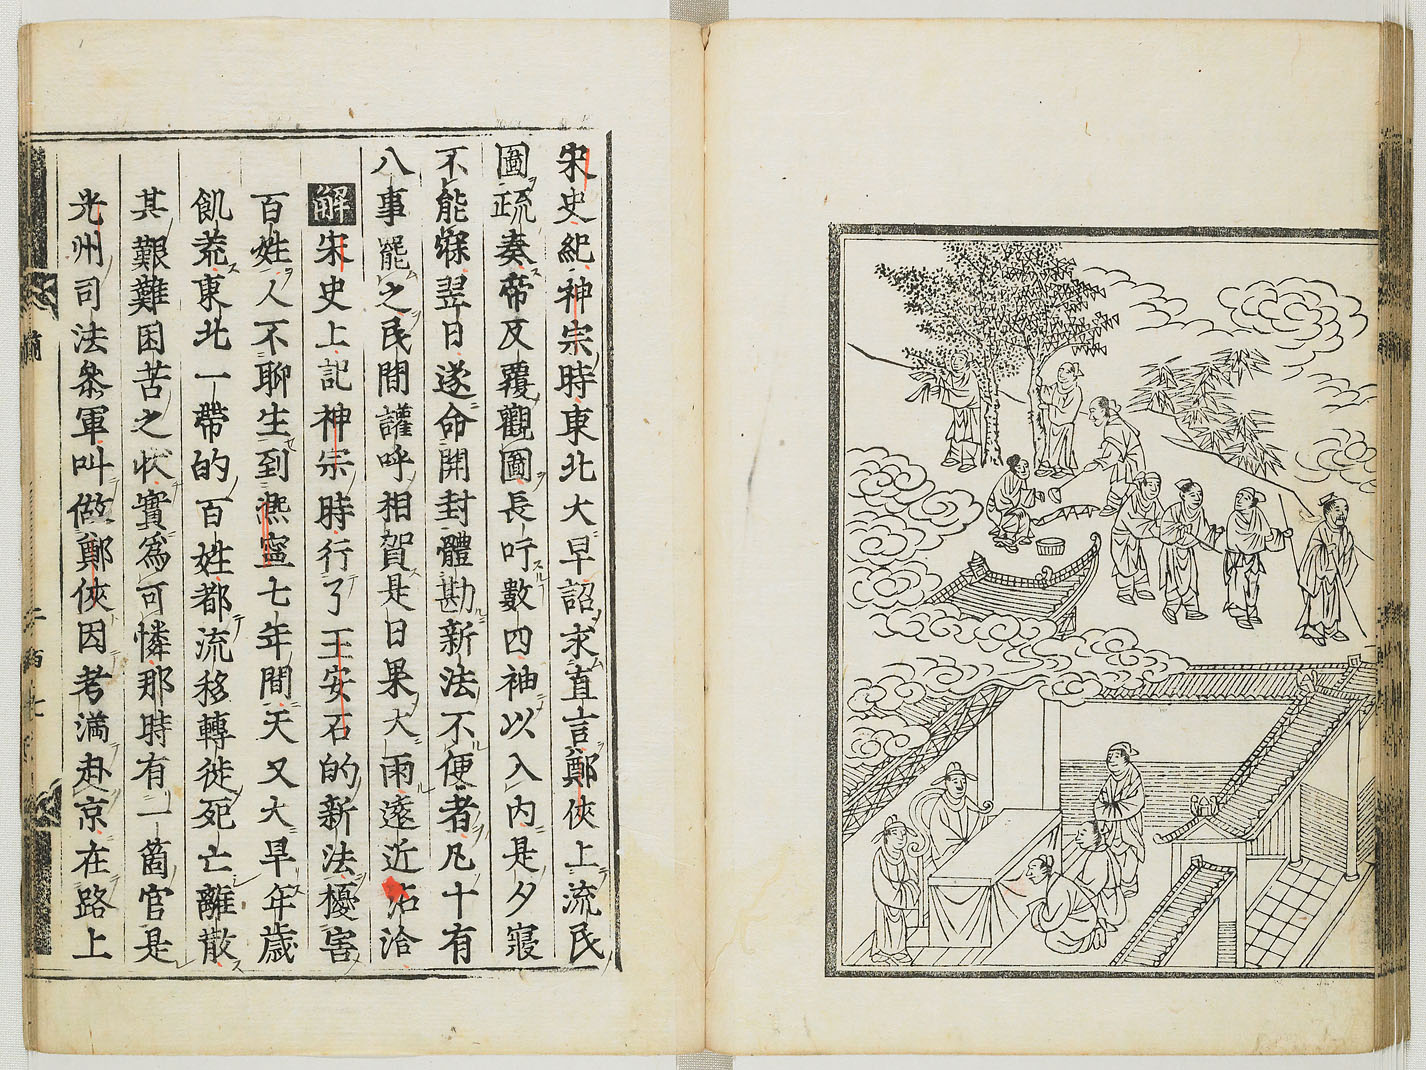 宋史紀神宗時東北大旱詔求直言鄭俠上流民
圖疏奏帝反覆觀圖長吁數四袖以入內是夕寢
不能寐翌日遂命開封體勘新法不便者凡十有
八事罷之民間讙呼相賀是日果大雨遠近沾洽
解宋史上記神宗時行了王安石的新法擾害
百姓人不聊生到熙寧七年間天又大旱年歲
飢荒東北一帶的百姓都流移轉徙死亡離散
其艱難困苦之狀實為可憐那時有一箇官是
光州司法叅軍叫做鄭俠因考滿赴京在路上